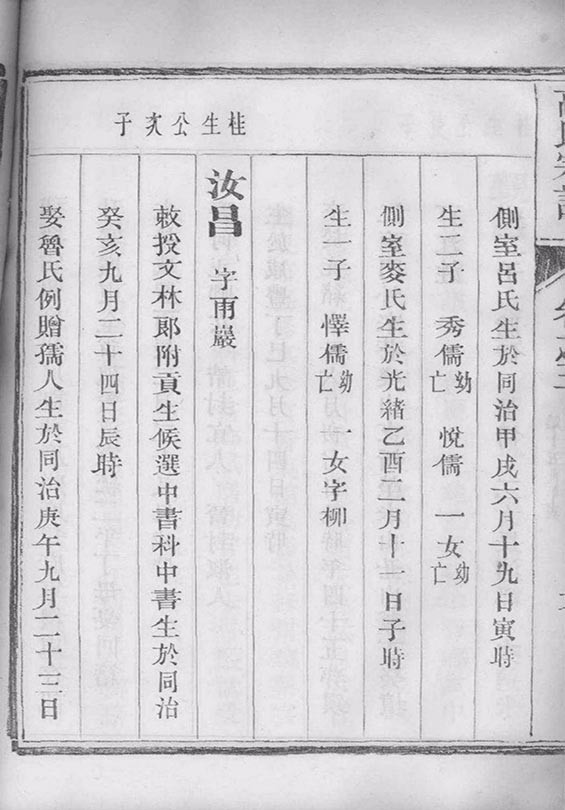 側室呂氏生於同治甲戌六月十九日寅時
生二子 秀儒幼亡 悅儒 一女幼亡
側室麥氏生於光緒乙酉二月十一日子時
生一子 懌儒幼亡 一女字柳
桂生公亥子
汝昌 字甫巖
敕授文林郎附貢生候選中書科中書生於同治
癸亥九月二十四日辰時
娶魯氏例贈孺人生於同治庚午九月二十三日